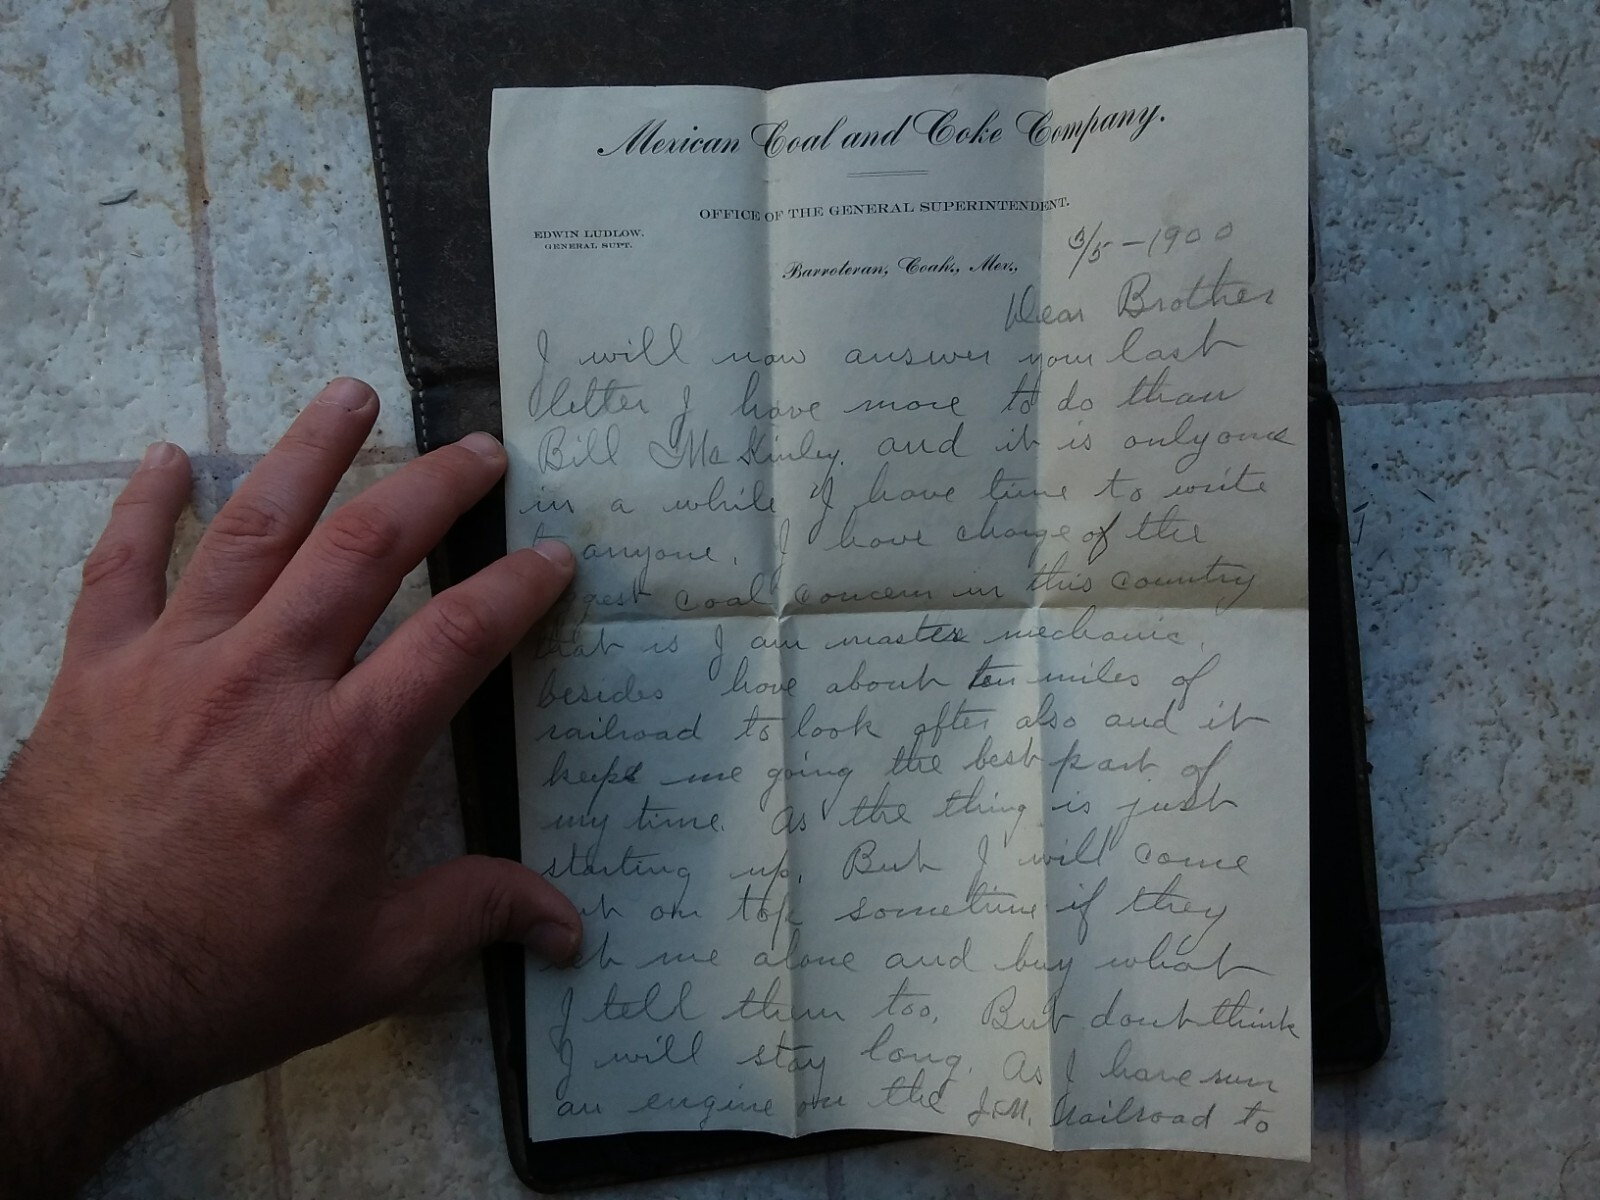 Mexican Coal and Coke Company.
OFFICE OF THE GENERAL SUPERINTENDENT.
EDWIN LUDLOW,
GENERAL SUPT.
Barroteran, Coah., Mex.,
3/5 – 1900
Dear Brother
I will now answer your last
letter I have more to do than
Bill McKinley. and it is only once
in a while I have time to write
to anyone. I have charge of the
gest coal concern in this country
that is I am master mechanic.
besides have about ten miles of
railroad to look after also and it
keeps me going the best part of
my time. As the thing is just
starting up. But I will come
ut on top sometime if they
let me alone and buy what
I tell them too. But dont think
I will stay long. As I have run
an engine on the Railroad to